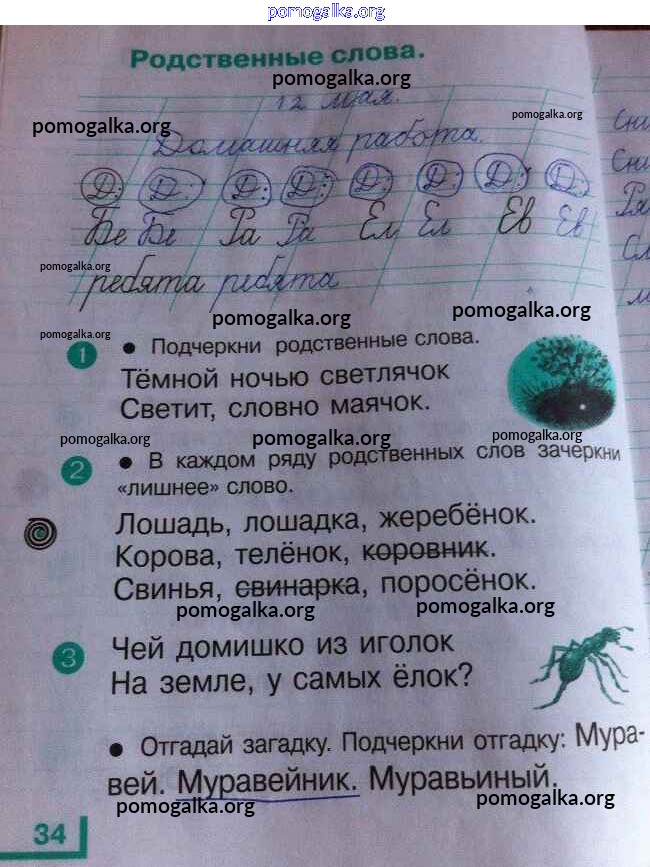 pomogalka.org
Родственные слова.
pomogalka.org
12 мая.
pomogalka.org
pomogalka.org
Домашняя работа.
Сни
Сни
Д: Д: Д: Д: Д: Д: Д: Д:
Бе Бе Ра Ра Ел Ел Ев Ев
pomogalka.org
ребята ребята
pomogalka.org
pomogalka.org
pomogalka.org
1 • Подчеркни родственные слова.
Тёмной ночью светлячок
Светит, словно маячок.
pomogalka.org pomogalka.org pomogalka.org
2 • В каждом ряду родственных слов зачеркни
«лишнее» слово.
Лошадь, лошадка, жеребёнок.
Корова, телёнок, коровник.
Свинья, свинарка, поросёнок.
pomogalka.org pomogalka.org
3 Чей домишко из иголок
На земле, у самых ёлок?
• Отгадай загадку. Подчеркни отгадку: Мура-
вей. Муравейник. Муравьиный.
pomogalka.org pomogalka.org
34